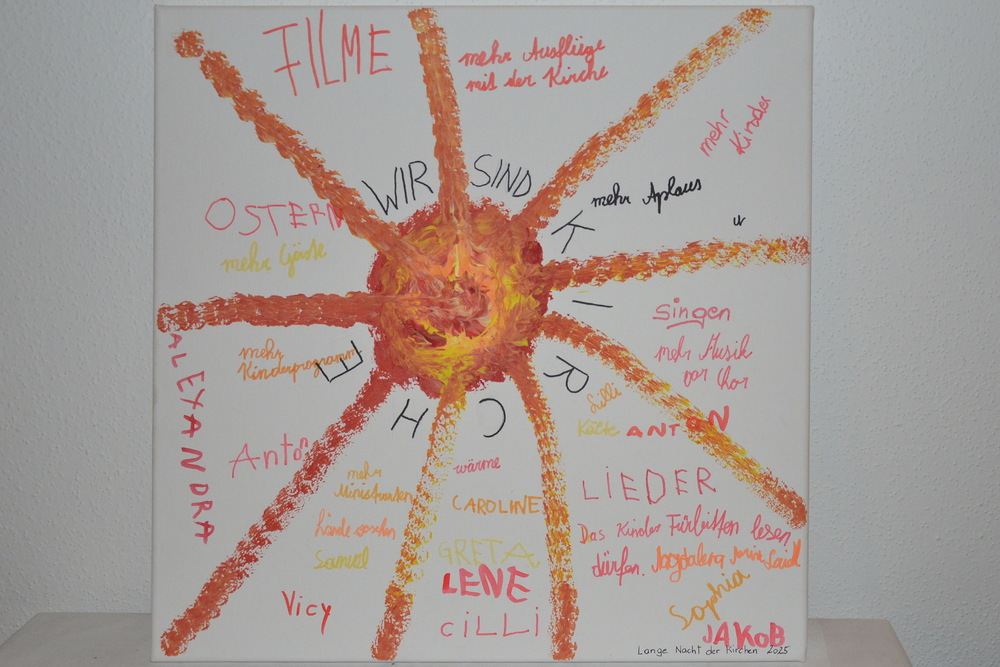 FILME
mehr Ausflüge
mit der Kirche
mehr
Kinder
WIR SIND
KIRCHE
mehr Aplaus
OSTERN
mehr Gäste
singen
mehr Musik
vor Chor
mehr
Kinderprogramm
ALEXANDRA
Lilli
Kälte
ANTON
Anton
wärme
mehr
Ministranten
CAROLINE
LIEDER
hände waschen
Samuel
GRETA
LENE
CILLI
Das Kinder Fürbitten lesen
dürfen. Magdalena
Sophia
Vicy
JAKOB
Lange Nacht der Kirchen 2025